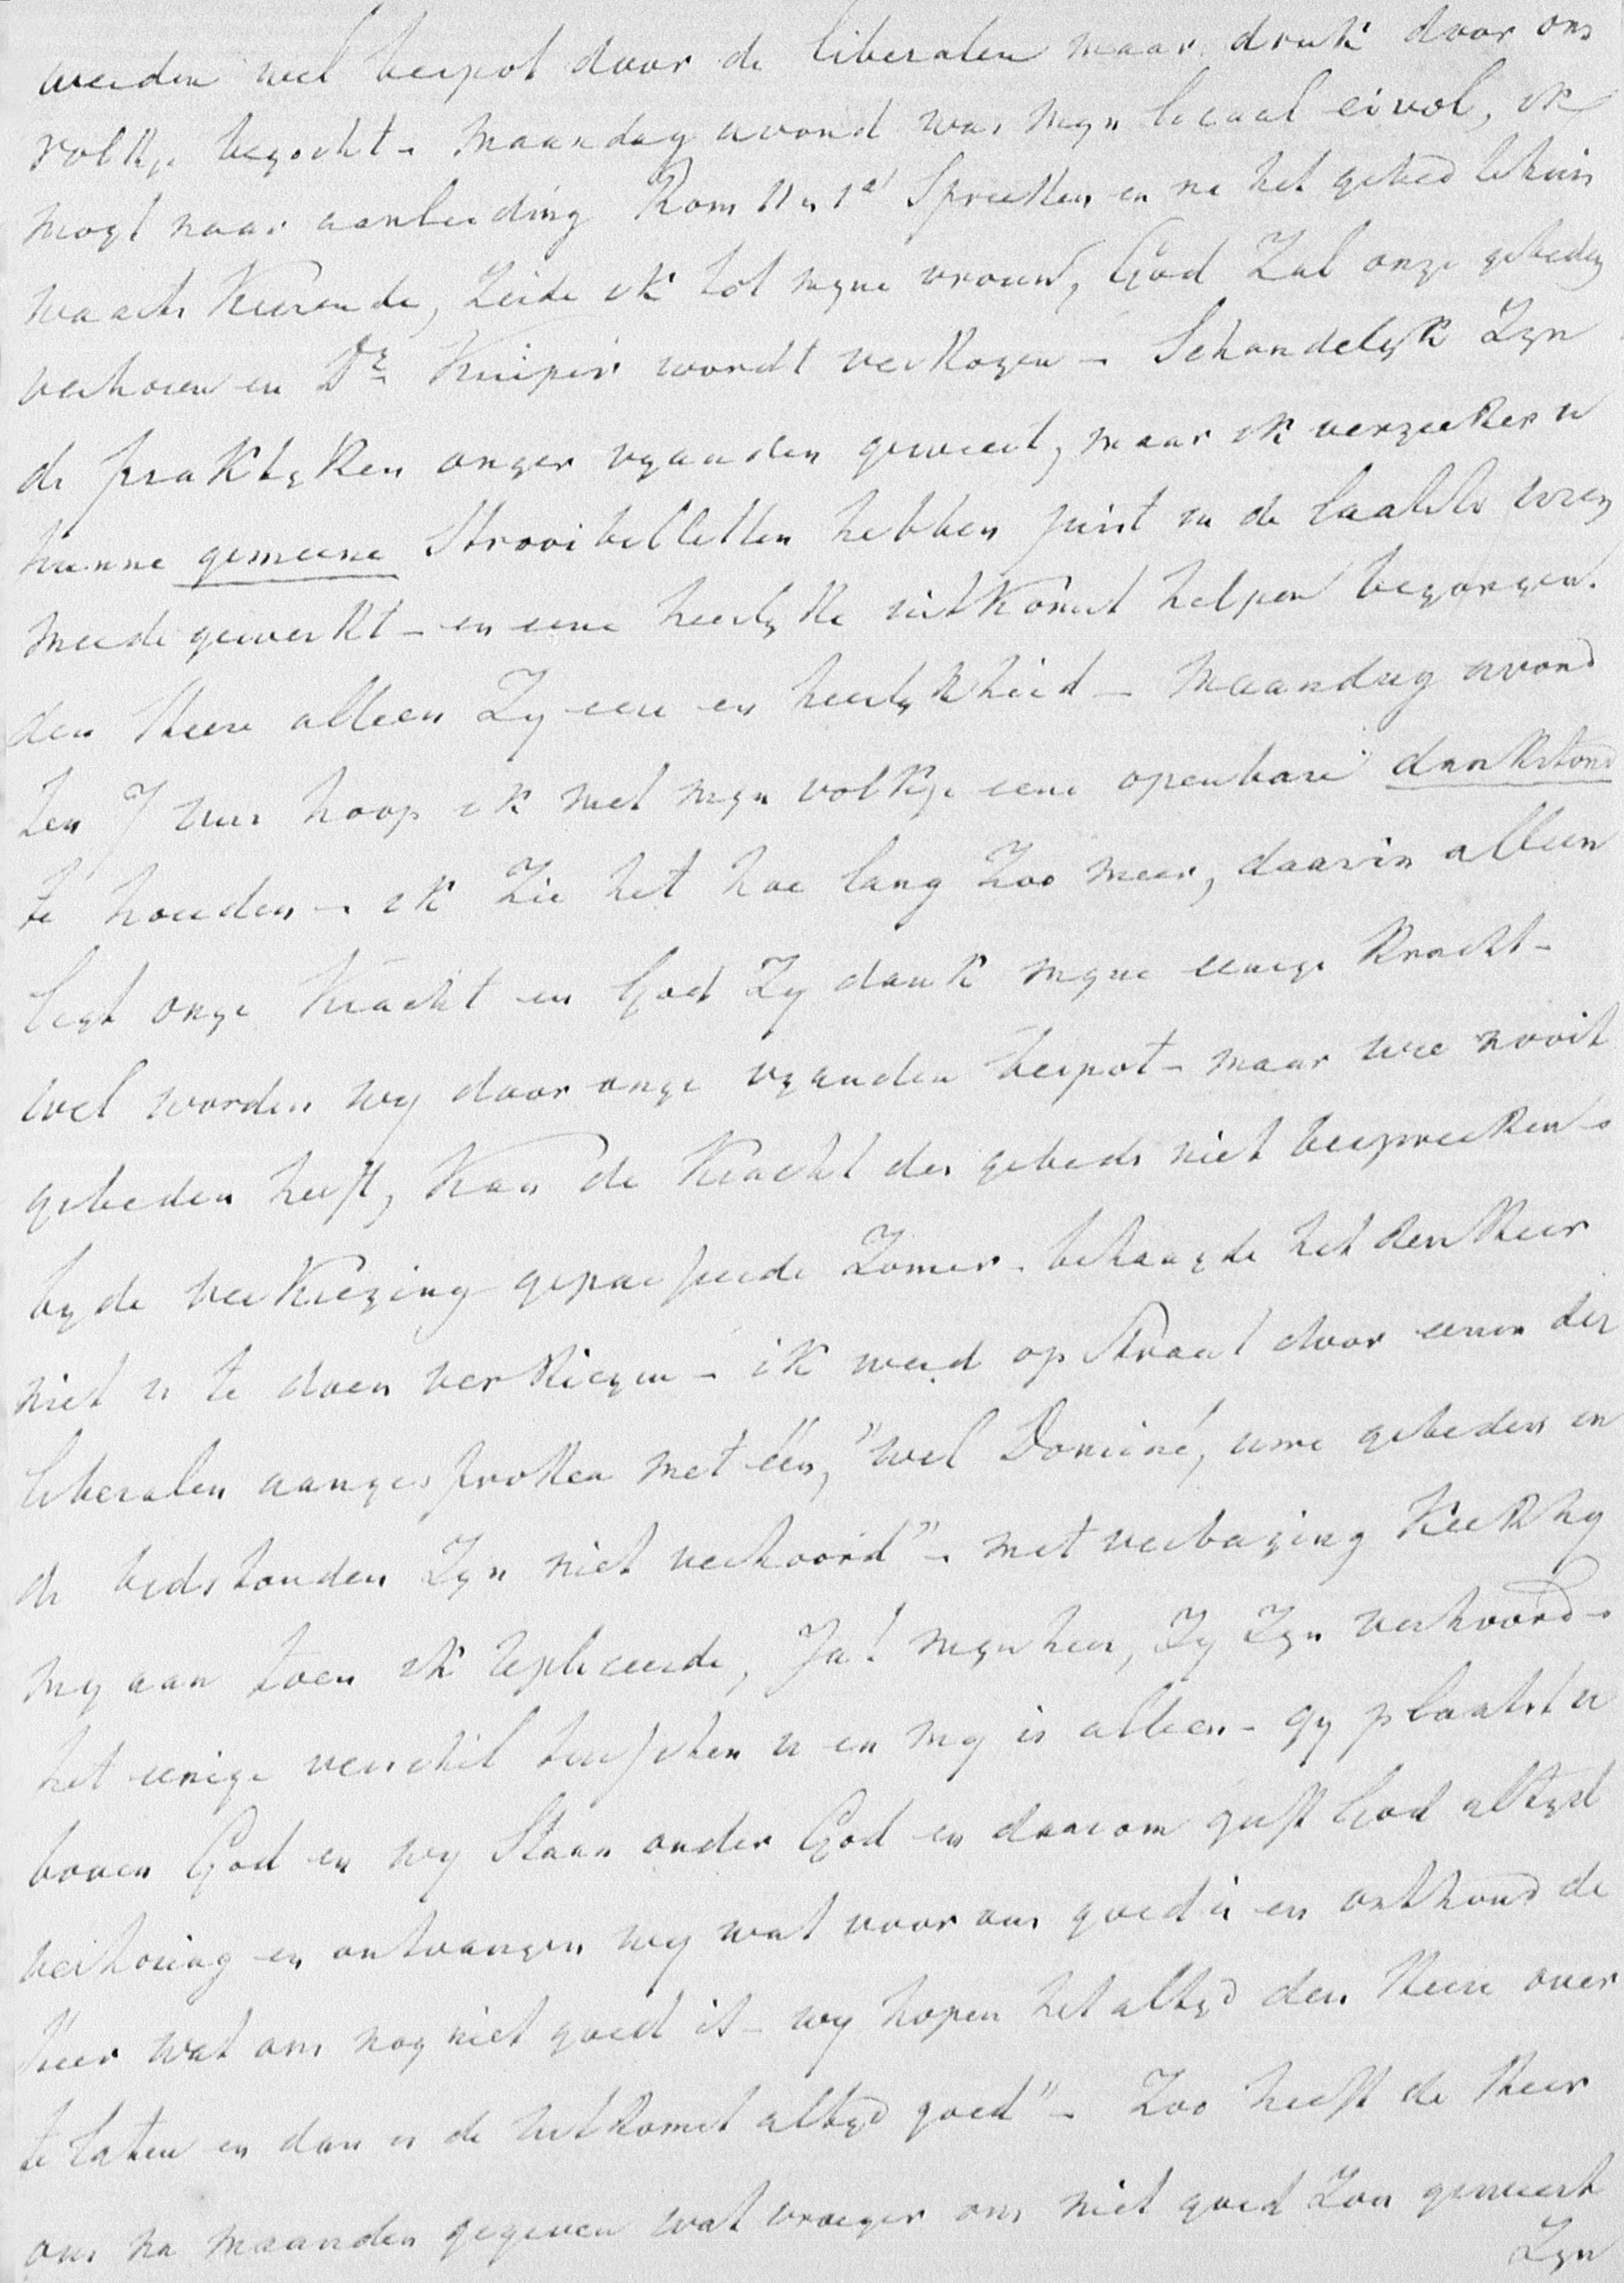 werden wel bespot door de liberalen maar druk door ons
volkje bezocht – maandag avond was mijn locaal eivol, ik
mogt naar aanleiding Rom 11 v 1a spreeken en na het gebed te huis
waarts keerende, zeide ik tot mijne vrouw, God zal onze gebeden
verhoren en Dr Kuiper wordt verkozen – Schandelijk zijn
de praktijken onzer vijanden geweest, maar ik verzeeker u
hunne gemeene strooibilletten hebben juist in de laatste uren
meede gewerkt – en eene heerlijke uitkomst helpen bezorgen.
den Heere alleen zij eere en heerlijkheid – maandag avond
ten 7 uur hoop ik met mijn volkje eene openbare dankstond
te houden – ik zie het hoe lang zoo meer, daarin alleen
legt onze kracht en God zij dank mijne eenige kracht –
wel worden wij door onze vijanden bespot – maar wie nooit
gebeden heeft, kan de kracht des gebeds niet bespreeken –
bij de verkiezing gepasseerde zomer behaagde het den Heer
niet u te doen verkiezen – ik werd op straat door eenen der
liberalen aangesproken met één, "wel Dominé, uwe gebeden en
de bedstonden zijn niet verhoord" – met verbazing keek hij
mij aan toen ik repliceerde, Ja! mijn heer, zij zijn verhoord –
het eenige verschil tusschen u en mij is alleen – gij plaatst u
boven God en wij staan onder God en daarom geeft God altijd
verhoring en ontvangen wij wat voor ons goed is en onthoud de
Heer wat ons nog niet goed is – wij hopen het altijd den Heere over
te laten en dan is de uitkomst altijd goed" – Zoo heeft de Heer
ons na maanden gegeven wat vroeger ons niet goed zou geweest
zijn